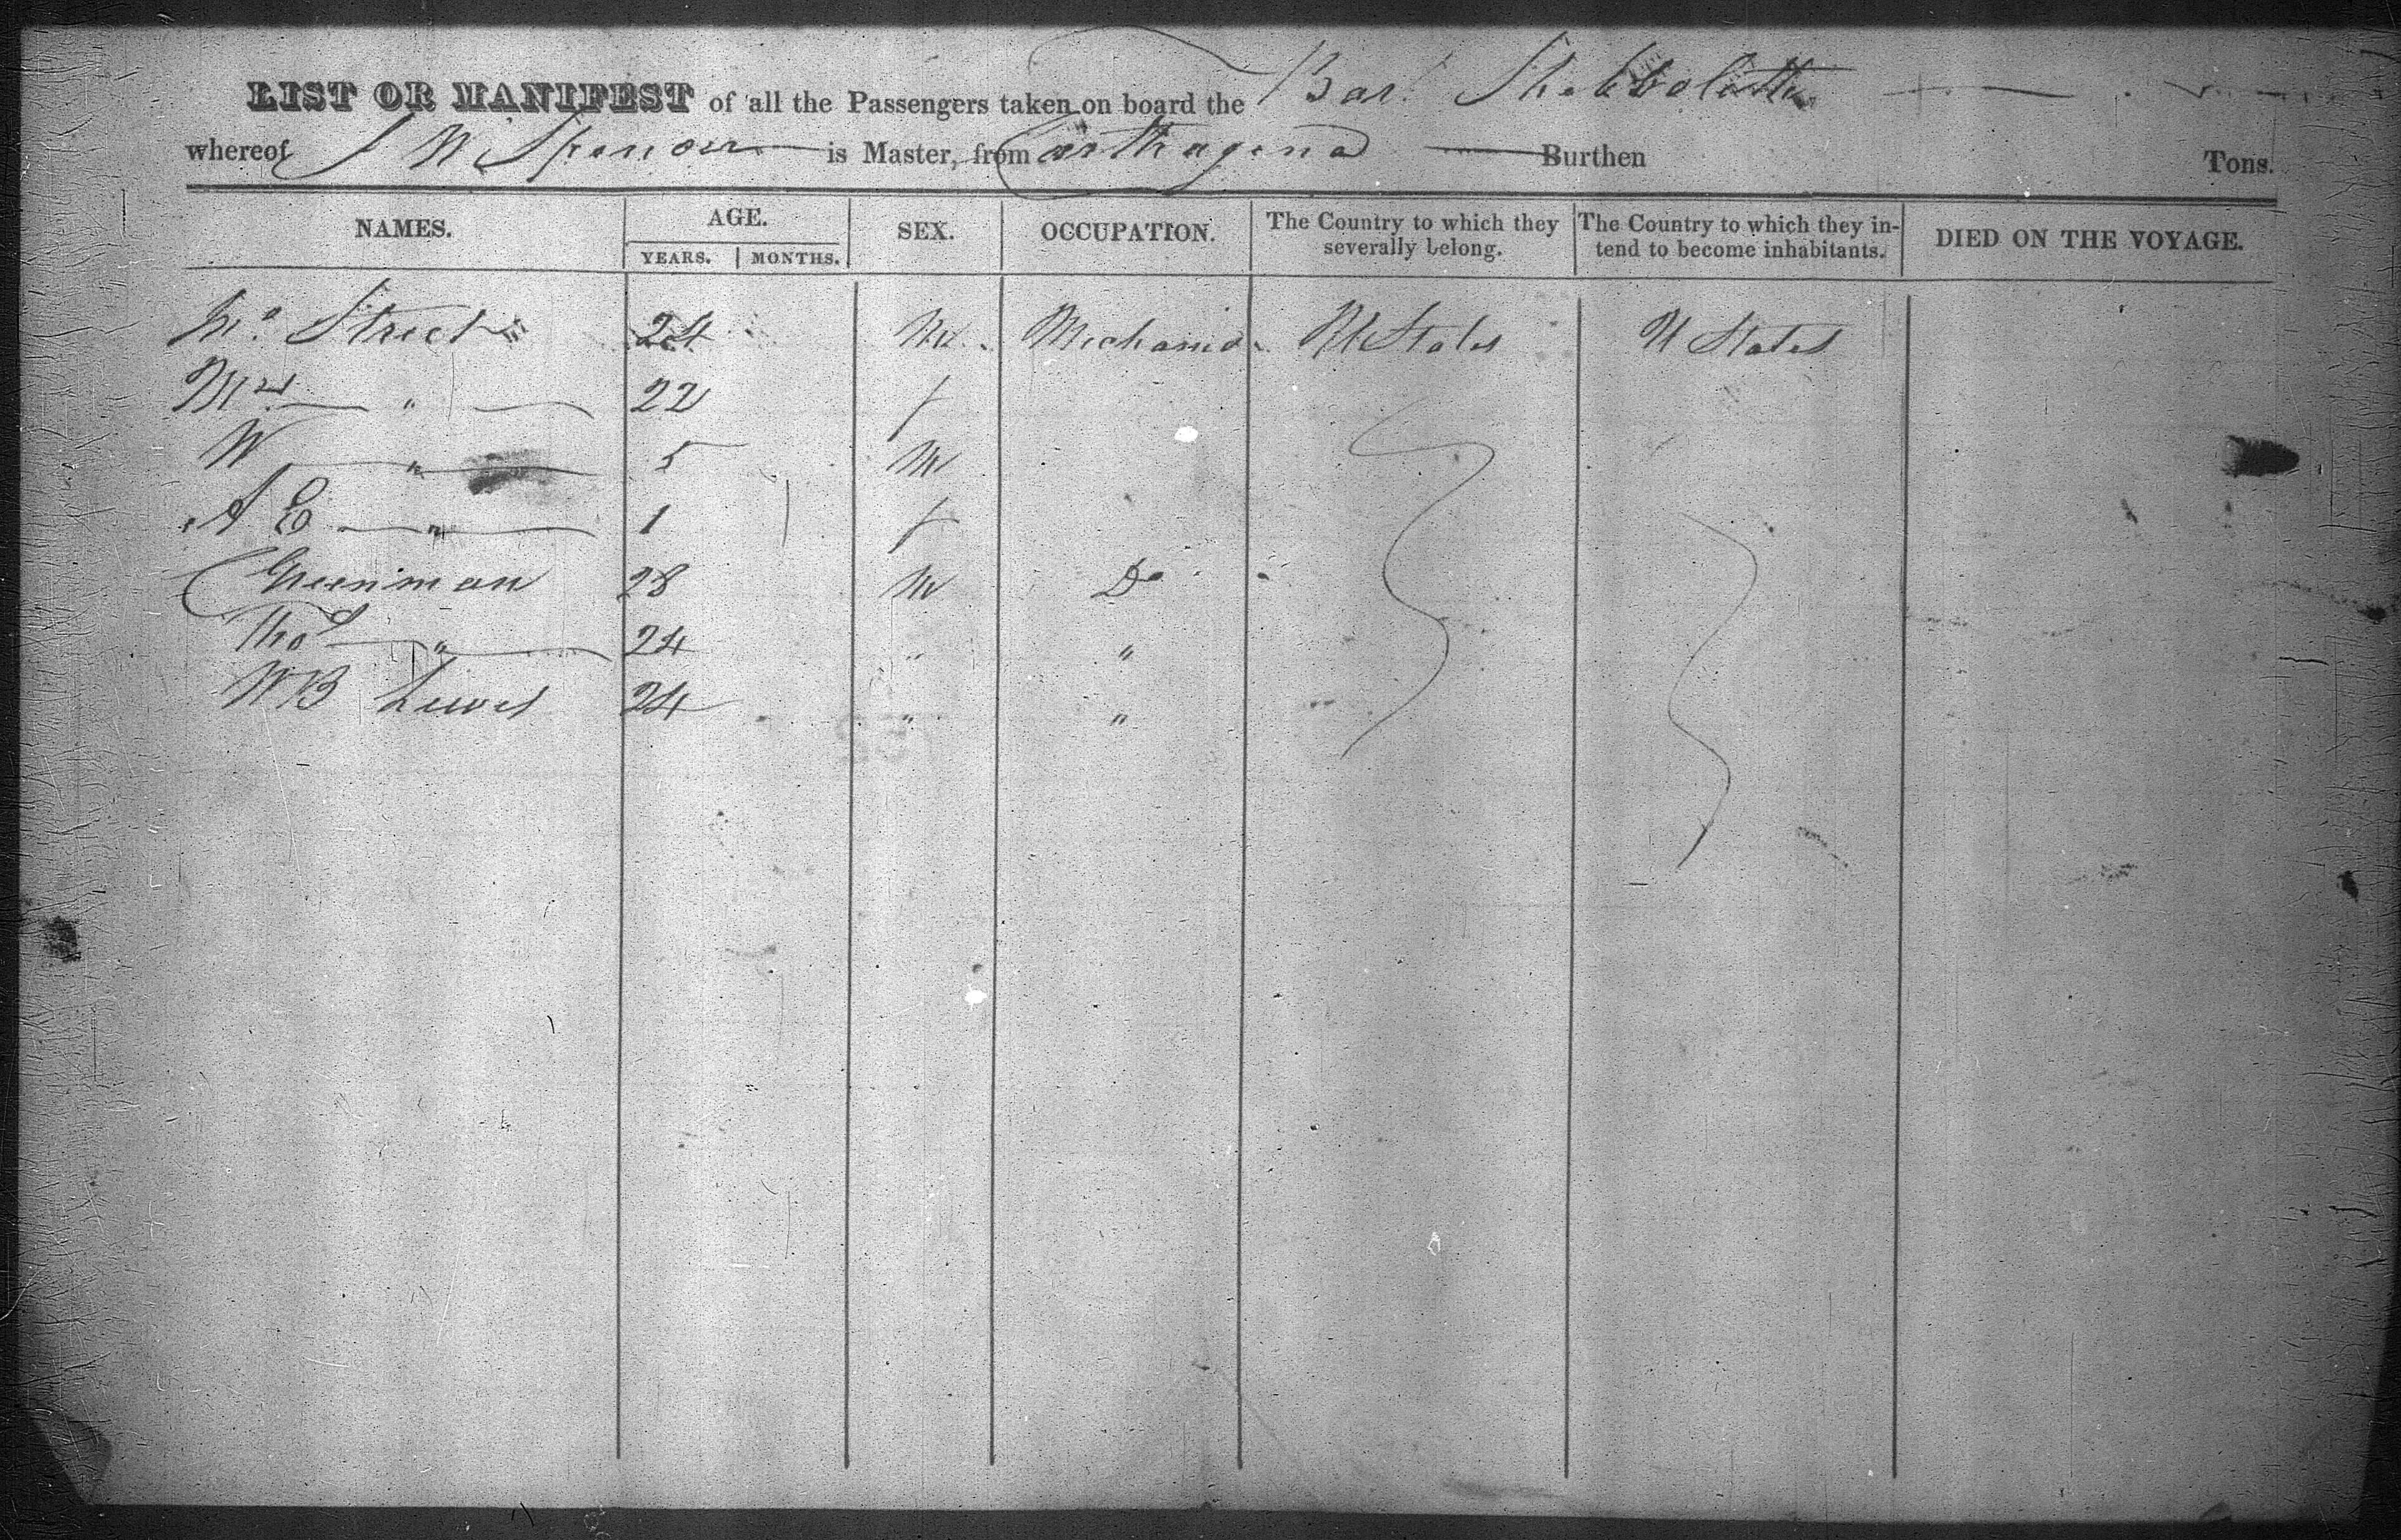 LIST OR MANIFEST of all the Passengers taken on board the Bark Shebbolette
whereof J W Spencer is Master, from Carthagena Burthen Tons.
NAMES. AGE. SEX. OCCUPATION. The Country to which they severally belong. The Country to which they intend to become inhabitants. DIED ON THE VOYAGE.
YEARS. MONTHS.
Street 24 M. Mechanic U States U States
Mrs " 22 f
W " 5 M
A E " 1 f
C Greenman 28 M Do
Thos " 24 " "
W B Lewis 24 " "